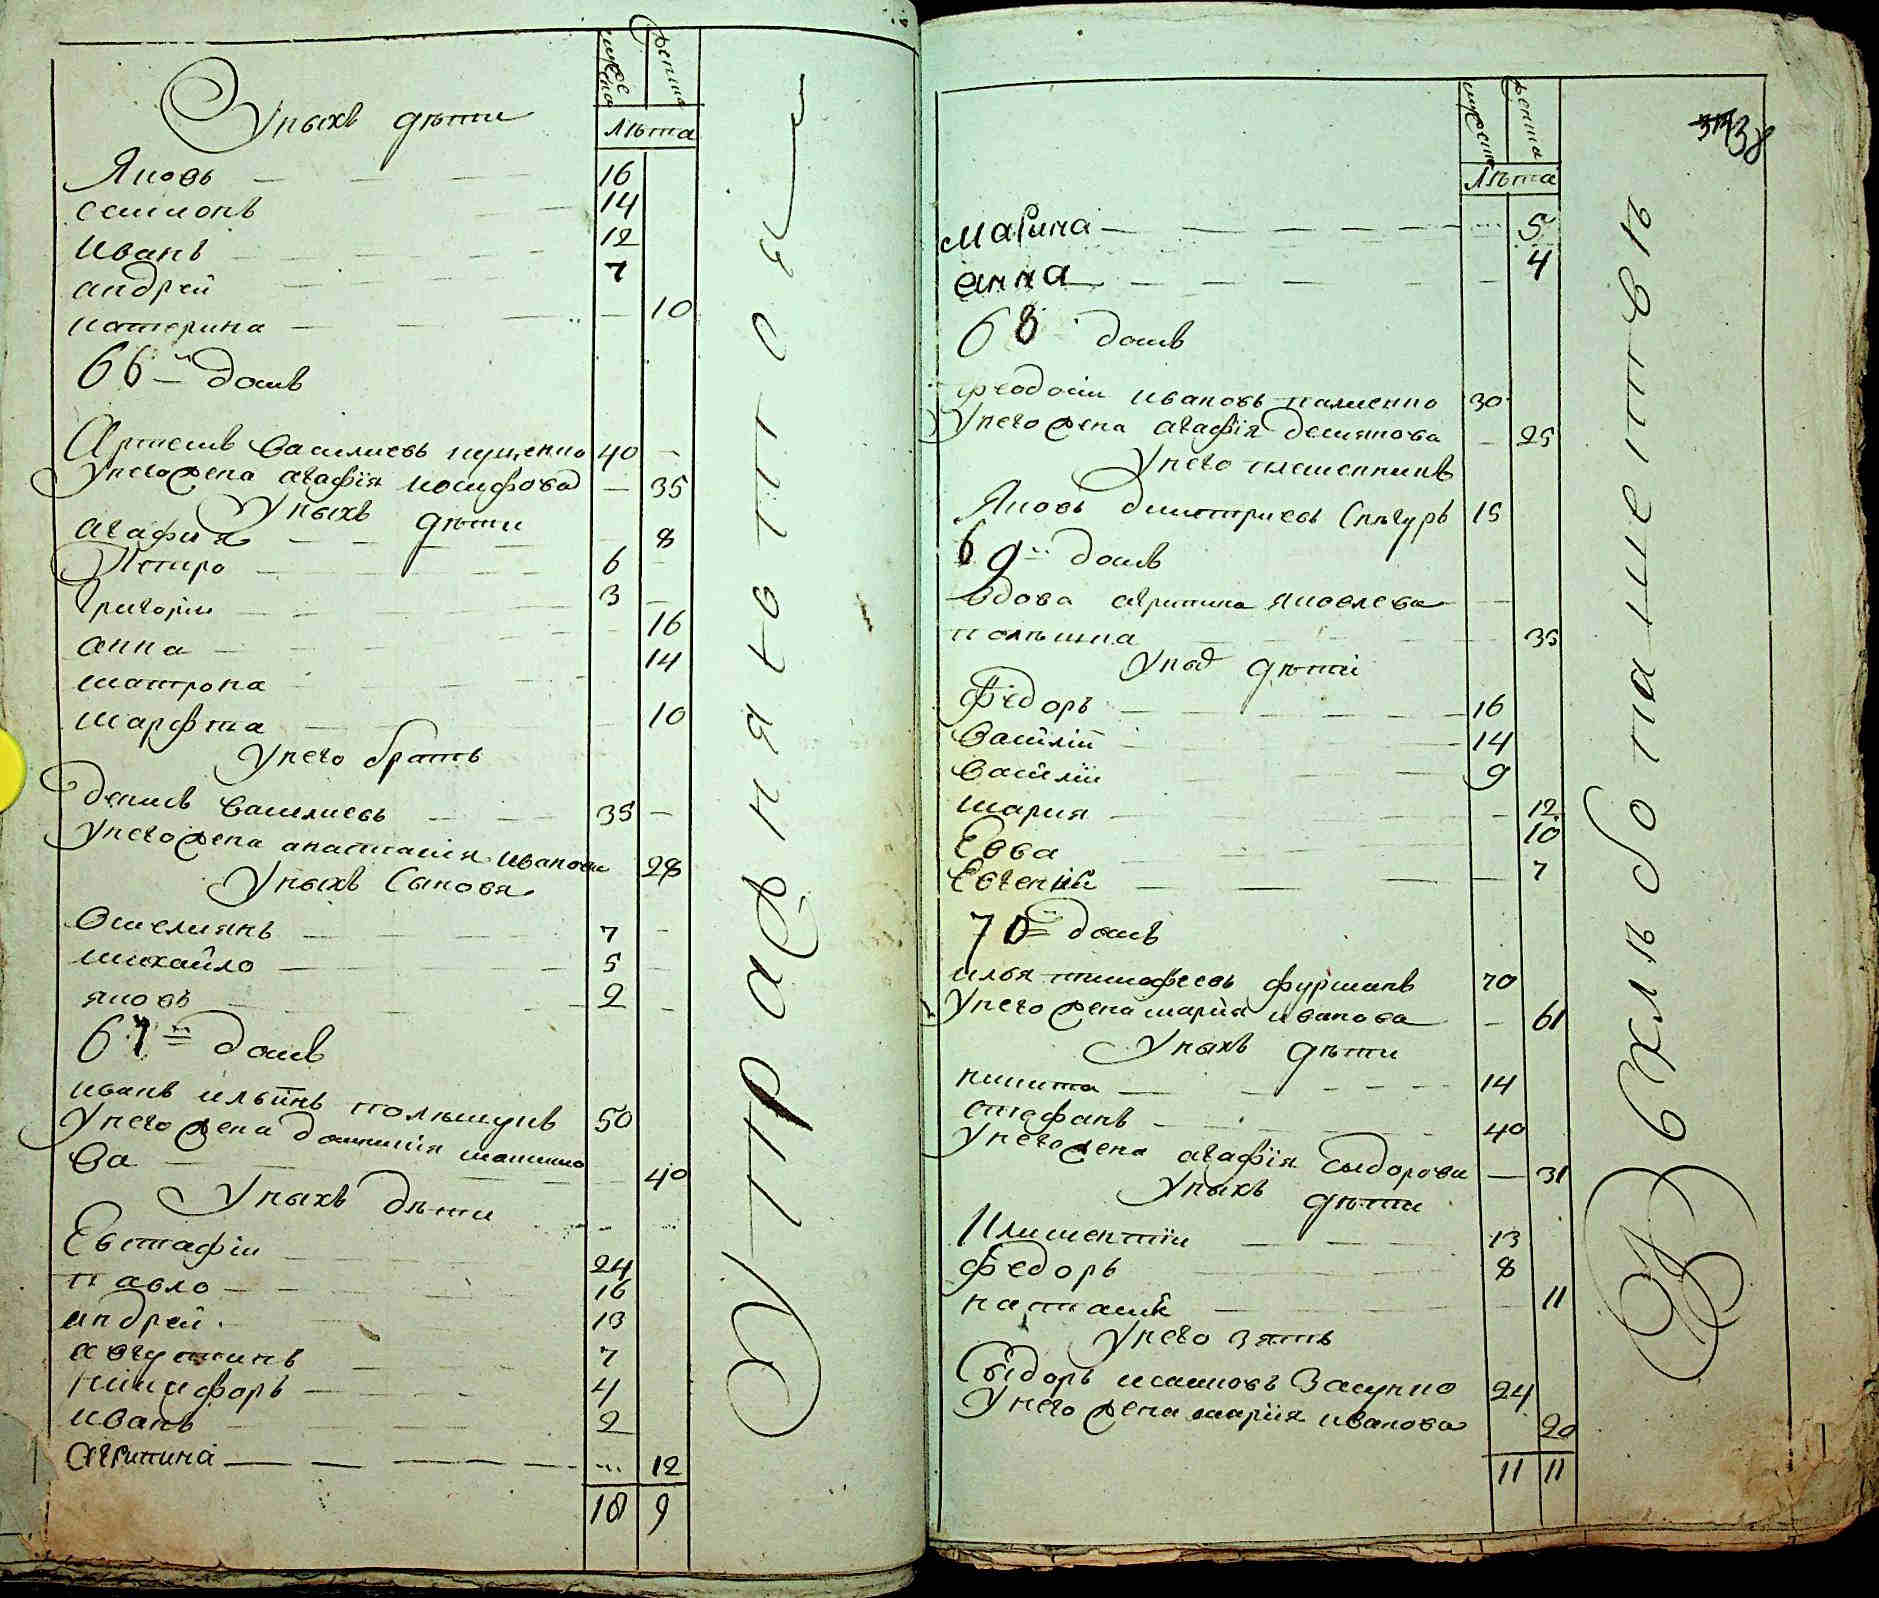 мужеска женска
Лѣта
Уныхъ дѣти
Яковъ 16
семионъ 14
Иванъ 12
андрей 7
катерина 10
66й домъ
Артемъ Василиевъ куценко 40
Унего жена агафия иосифова 35
Уныхъ дѣти
агафия 8
Петро 6
Григории 3
анна 16
матрона 14
марфта 10
Унего братъ
Денисъ Василиевъ 35
Унего жена анастасия иванова 28
Уныхъ Сыновя
Омелиянъ 7
михайло 5
яковъ 2
67й домъ
иванъ ильинъ полѣшукъ 50
Унего жена домникия макимо
ва 40
Уныхъ дѣти
Евстафии 24
павло 16
андрей 13
августинъ 7
никифоръ 4
иванъ 2
агрипина 12
18 9
мужеска женска
Лѣта
38
марина 5
анна 4
68 домъ
феодоси ивановъ паленко 30
Унего жена агафия демянова 25
Унего племенникъ
Яковъ димитриевъ Снѣгуръ 15
69й домъ
вдова агрипина яковлева
полѣшка 35
Унея дѣти
Федоръ 16
Василий 14
василии 9
мария 12
Евва 10
Евгения 7
70й домъ
илья тимофеевъ фурманъ 70
Унего жена мария иванова 61
Уныхъ дѣти
никита 14
стефанъ 40
Унего жена агафия сыдорова 31
Уныхъ дѣти
Климентии 13
Федоръ 8
настасия 11
Унего зять
Сыдоръ исаковъ 24
Унего жена мария иванова 20
11 11